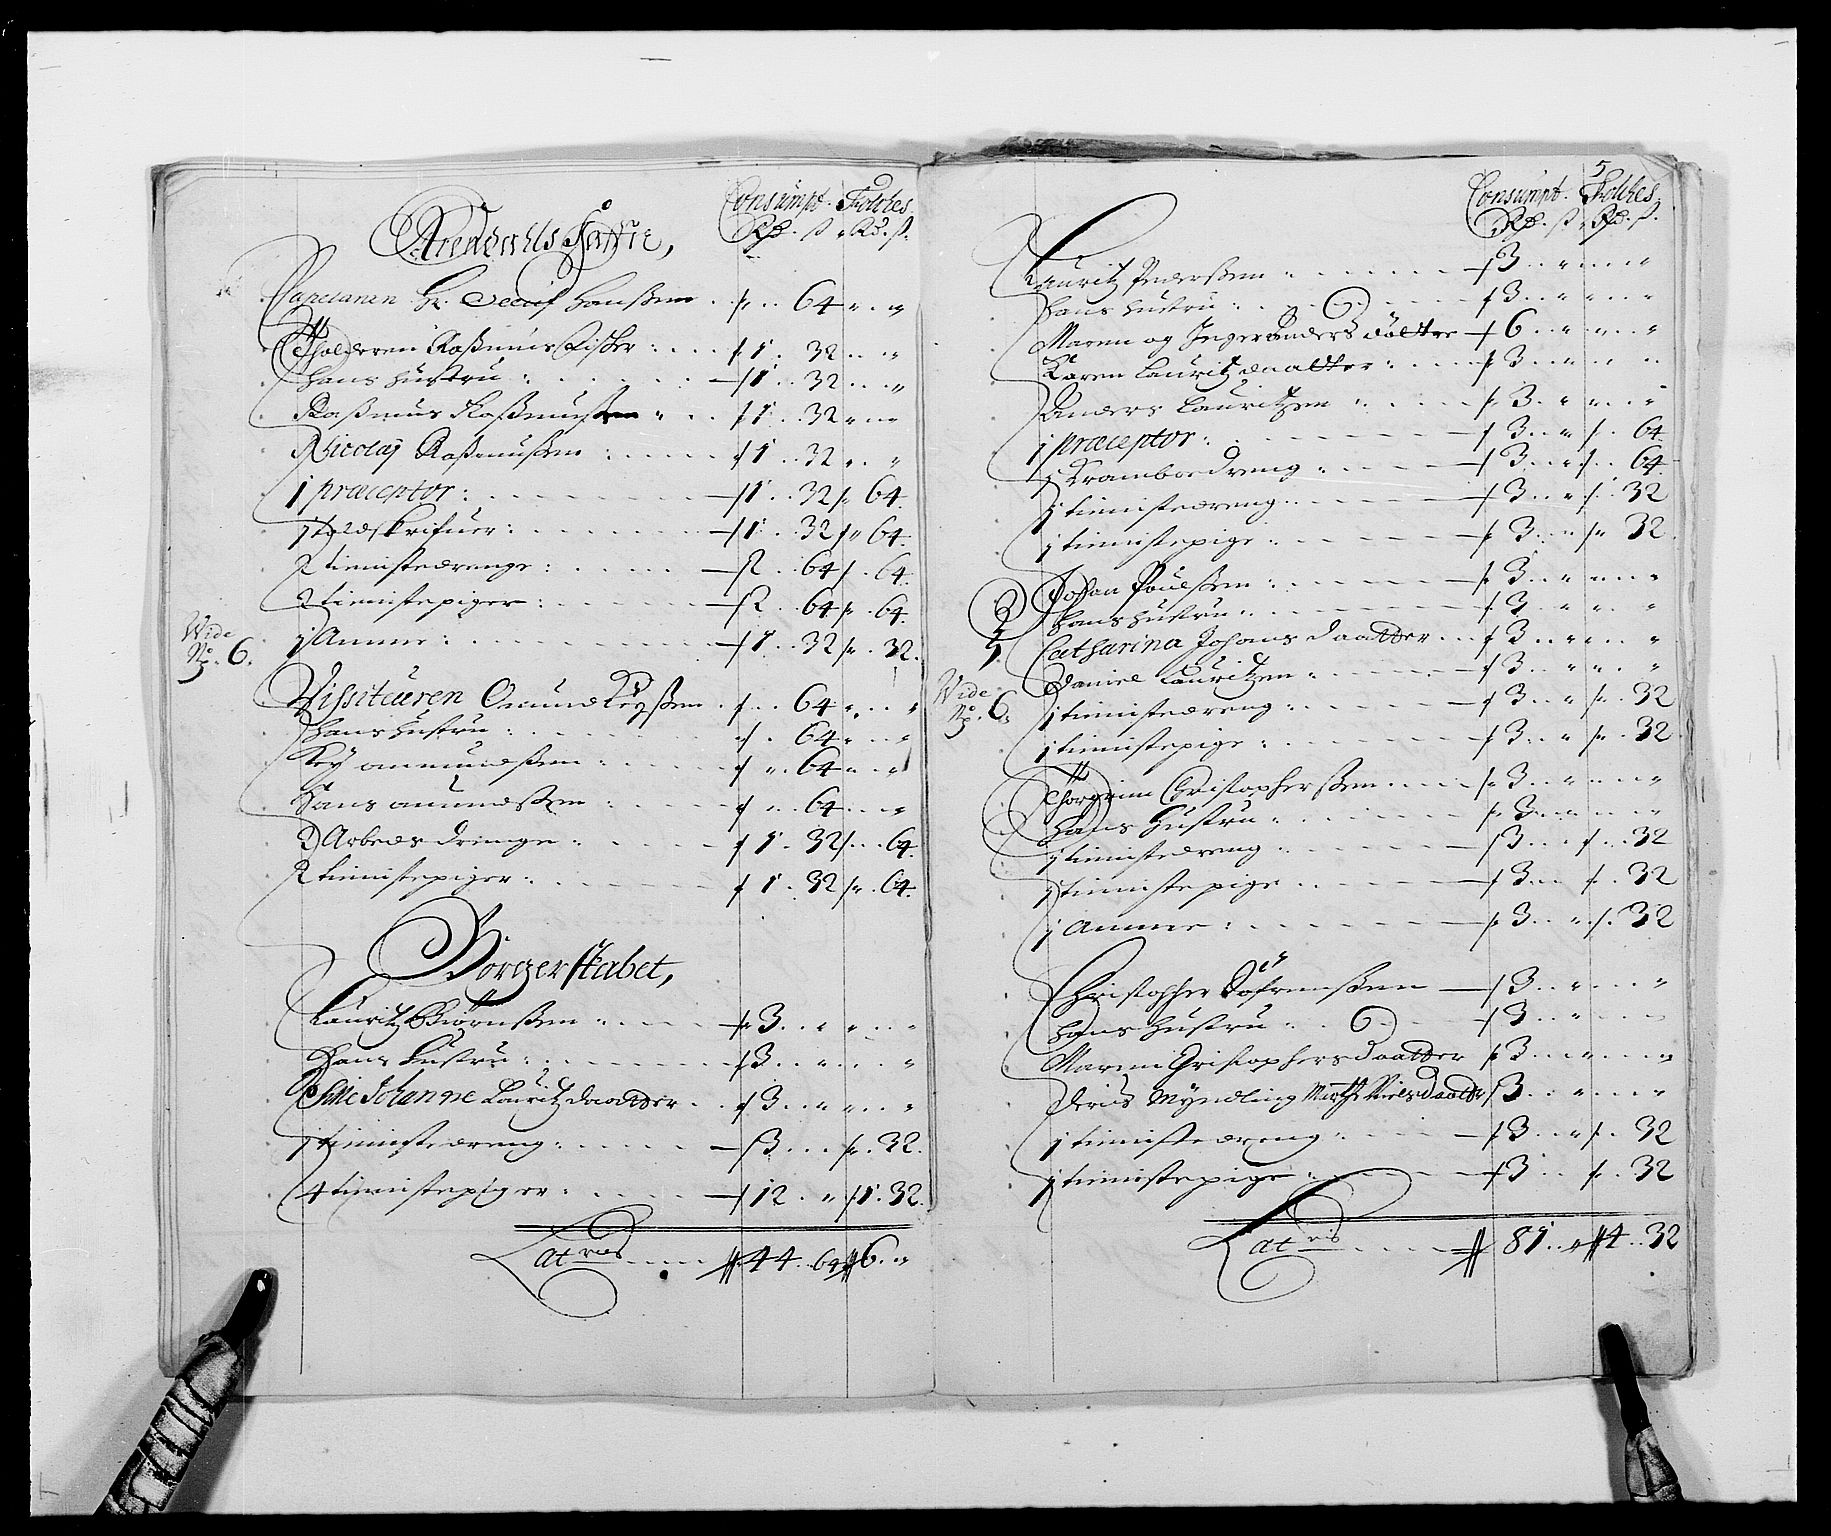 Consumpt. Folckes
Rd. ß. Rd. ß.
Arendahls
Capelanen Hr. Hanßen . . 64 . . "
Tholderen Raßmus Fisker : . . 1 . 32 . . "
Hans Hustru : . . 1 . . 32 . . "
Raßmus Raßmußen " . . 1 . 32 " . . "
Nicolaj Raßmußen . . 1 . . 32 " . "
1 præceptor : . . 1 . . 32 . 64.
1 toldskrifuer : . . 1 . . 32 " 64.
2 tienistedrenge : . . 2 . . 64 . . 64.
2 tienistepiger : . . 2 . . 64 . 64.
Wide
No. 6.
1 Amme : . . 1 . . 32 . 32.
Vissiteuren Omund Keyßen . . . 64 " . . "
Hans Hustru : . . . 64 " . . "
Key omundßen . . " . 64 " . . "
Hans omundßen . . " . 64 . . . "
2 Arbeds drenge . . 1 . 32 . . . 64.
2 tienistepiger . . 1 . 32 " . 64.
Borgerskabet,
Lauritz Biørnßen . . 3 . . " . " . . "
Hans Hustru : . . 3 . . " . . . "
Sille Johanne Lauritzdaatter . . 3 . . " . " . . "
1 tienistedreng : . . 3 . . . . 32.
4 tienistepiger . . 12 . " 1 . 32.
Lateris . . 44 . 64 6 . "
5
Consumpt. Folckes
Rd. ß. Rd. ß.
Lauritz Pederßen . . 3 . . " . . . "
Hans Hustru : . . 3 . . " . . . "
Maren og Inger Anders døttre 6 . . " . " . "
Karen Lauritzdaatter : . . 3 . . " . " . . "
Anders Lauritzen . . 3 . . " . " . . "
1 præceptor : . . 3 . . " . . 64.
1 Kramboedreng . . 3 . . " . . 64.
1 tienistedreng . . 3 . . " . . 32
1 tienistepige . . 3 . . . " 32.
Johan Poulßen : . . 3 . . " . " . . "
Hans Hustru . . 3 . . " . " . "
Catharina Johans daatter . . 3 . . " . " . "
Daniel Lauritzen . . 3 . . " . " . "
Wide
No. 6.
1 tienistedreng . . 3 . . " . 32
1 tienistepige : . . 3 . . " . 32
Thorgrim Christopherßen . . 3 . . " . . . "
Hans Hustru . . 3 . . " . . . "
1 tienistedreng . . 3 . . . . 32
1 tienistepige . . 3 . . . 32
1 Amme : . . 3 . . " . 32
Christopher . . 3 . . " . . . "
Hans Hustru . . 3 . . " . . . "
Maren Christophersdaatter 3 . . " . . . "
Deris Myndling Nielsdaatter 3 . . " . . . "
1 tienistedreng . . 3 . . " . 32
1 tienistepige . . 3 . . . 32
Lateris . . 81 . . " 4 . . 32